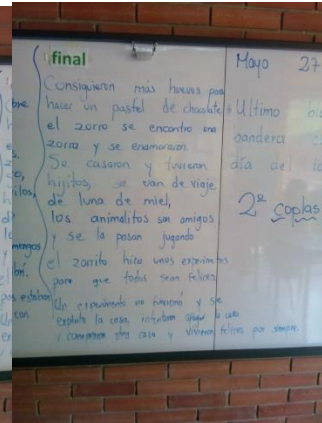 final
Consiguieron más huevos para
hacer un pastel de chocolate
el zorro se encontro una
zorra y se enamoraron.
Se casaron y tuvieron
hijitos, se van de viaje
de luna de miel,
los animalitos son amigos
y se la pasan jugando
el zorrito hizo unos experimentos
para que todos sean felices.
Un experimento no funcionó y se
exploto la casa, intentaron apagar
y compraron otra casa y vivieron felices por siempre.
Mayo 27
Ultimo
bandera
día del
2º coplas
estaban
con